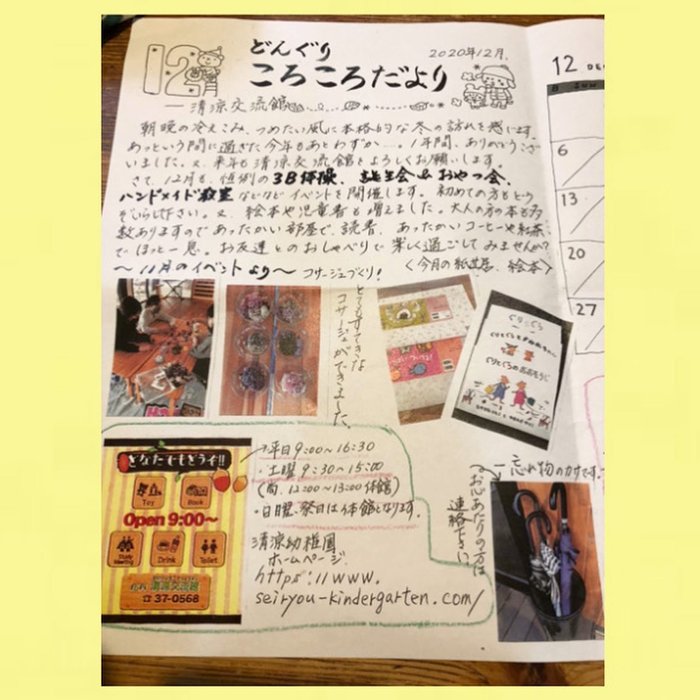 12
どんぐり
ころころだより
2020年12月.
ー清涼交流館
朝晩の冷えこみ、つめたい風に本格的な冬の訪れを感じます。
あっという間に過ぎた今年もあとわずか…。1年間、ありがとうござ
いました。又、来年も清涼交流館をよろしくお願いします。
さて、12月も、恒例の3B体操、誕生会&おやつ会、
ハンドメイド教室などなどイベントを開催します。初めての方もどう
ぞいらして下さい。又、絵本や児童書も増えました。大人の方の本も多
数ありますのであったかい部屋で、読書、あったかいコーヒーや紅茶
でほっと一息。お友達とのおしゃべりで楽しく過ごしてみませんか?
〜11月のイベントより〜 コサージュづくり!
〈今月の紙芝居、絵本〉
とてもすてきな
コサージュができました。
ぐりとぐら
ぐりとぐらのおおそうじ
どなたでもどうぞ!!
Toy
Book
Open 9:00〜
Study Meeting
Drink
Toilet
清涼交流館
☎37-0568
・平日9:00〜16:30
・土曜9:30〜15:00
(間、12:00〜13:00休館)
・日曜、祭日は休館となります。
清涼幼稚園
ホームページ
https://www.
seiryou-kindergarten.com/
忘れ物のカサです。
お心あたりの方は
連絡下さい。
12 DE
日 SUN
6
13
20
27